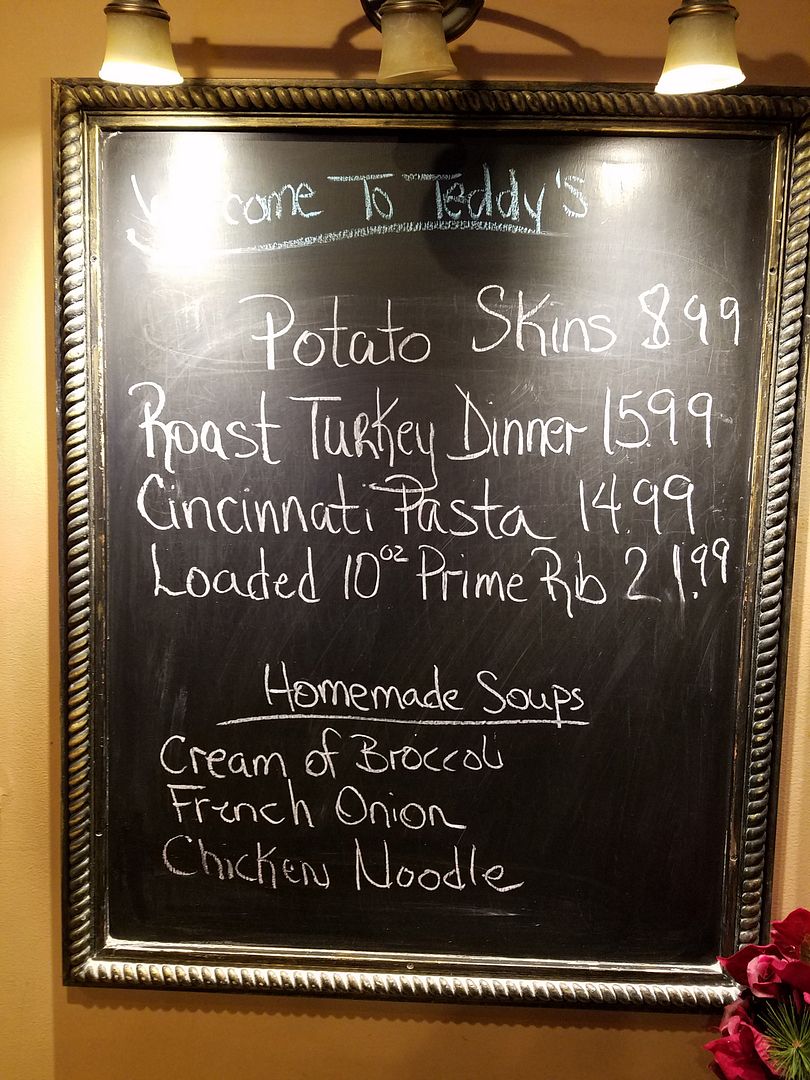 Welcome To Teddy's
Potato Skins 8 99
Roast Turkey Dinner 15.99
Cincinnati Pasta 14.99
Loaded 10oz Prime Rib 21.99
Homemade Soups
Cream of Broccoli
French Onion
Chicken Noodle